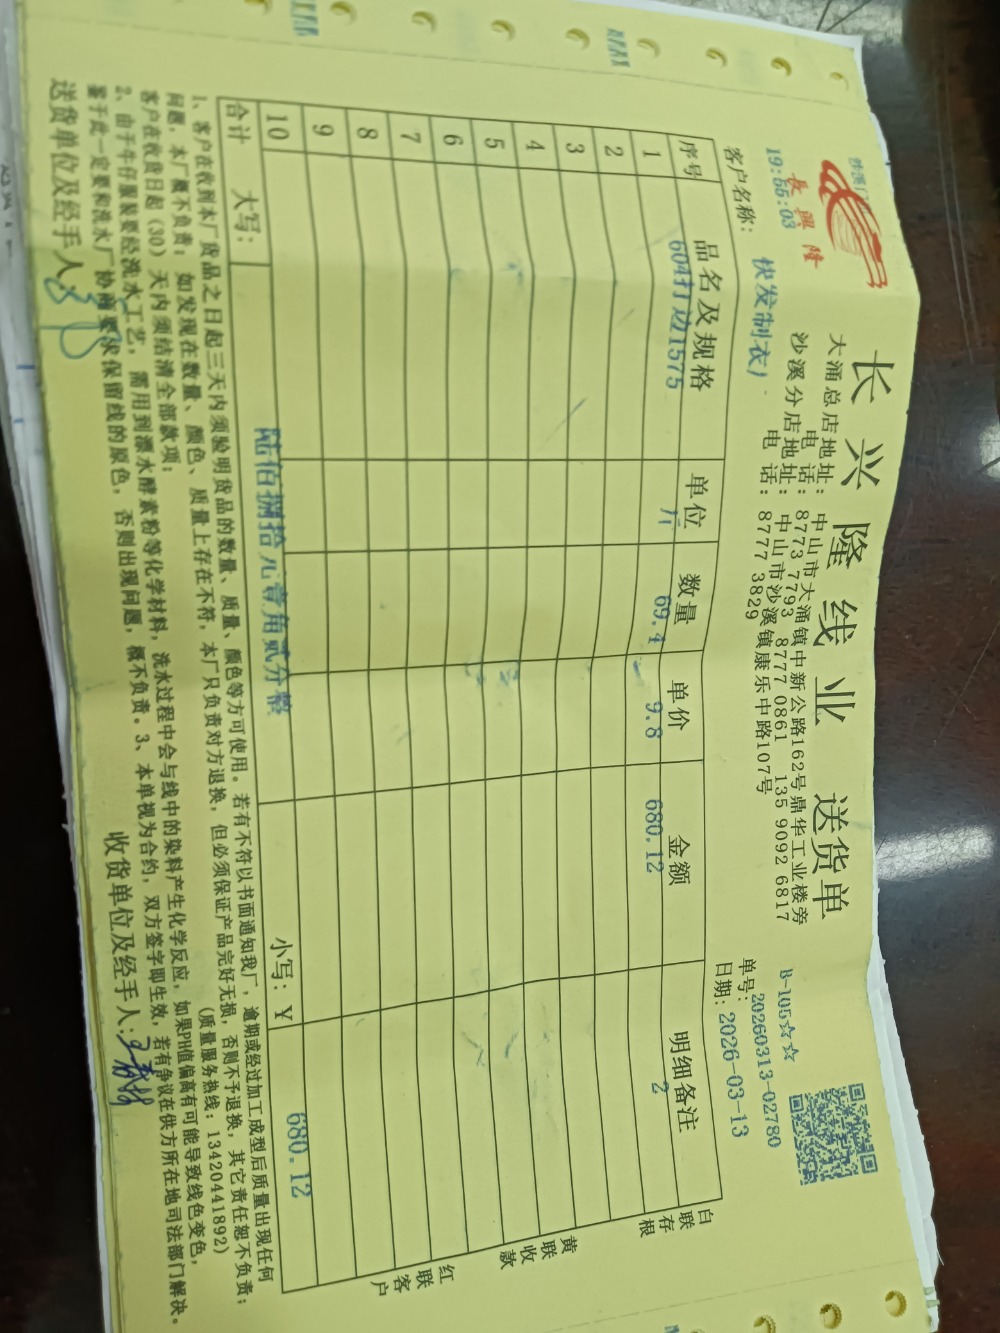 长兴隆线业 送货单
長興隆
大涌总店地址：中山市大涌镇中新公路162号鼎华工业楼旁
电话：8773 7793 8777 0861 135 9092 6817
沙溪分店地址：中山市沙溪镇康乐中路107号
电话：8777 3829
B-105☆☆
19:55:03
单号：20260313-02780
客户名称： 快发制衣厂
日期：2026-03-13
序号 品名及规格 单位 数量 单价 金额 明细备注
1 604打边1575 斤 69.4 9.8 680.12 2
2
3
4
5
6
7
8
9
10
合计 大写： 陆佰捌拾元壹角贰分整 小写：￥ 680.12
1、客户在收到本厂货品之日起三天内须验明货品的数量、质量、颜色等方可使用。若有不符以书面通知我厂，逾期或经过加工成型后质量出现任何
问题，本厂概不负责；如发现在数量、颜色、质量上存在不符，本厂只负责对方退换，但必须保证产品完好无损，否则不予退换，其它责任恕不负责；
客户在收货日起（30）天内须结清全部款项； （质量服务热线：13420441892）
2、由于牛仔服装要经洗水工艺，需用到漂水酵素粉等化学材料，洗水过程中会与线中的染料产生化学反应，如果PH值偏高有可能导致线色变色，
鉴于此一定要和洗水厂协商要求保留线的原色，否则出现问题，概不负责。3、本单视为合约，双方签字即生效，若有争议在供方所在地司法部门解决。
送货单位及经手人： 收货单位及经手人：
白联存根
黄联收款
红联客户